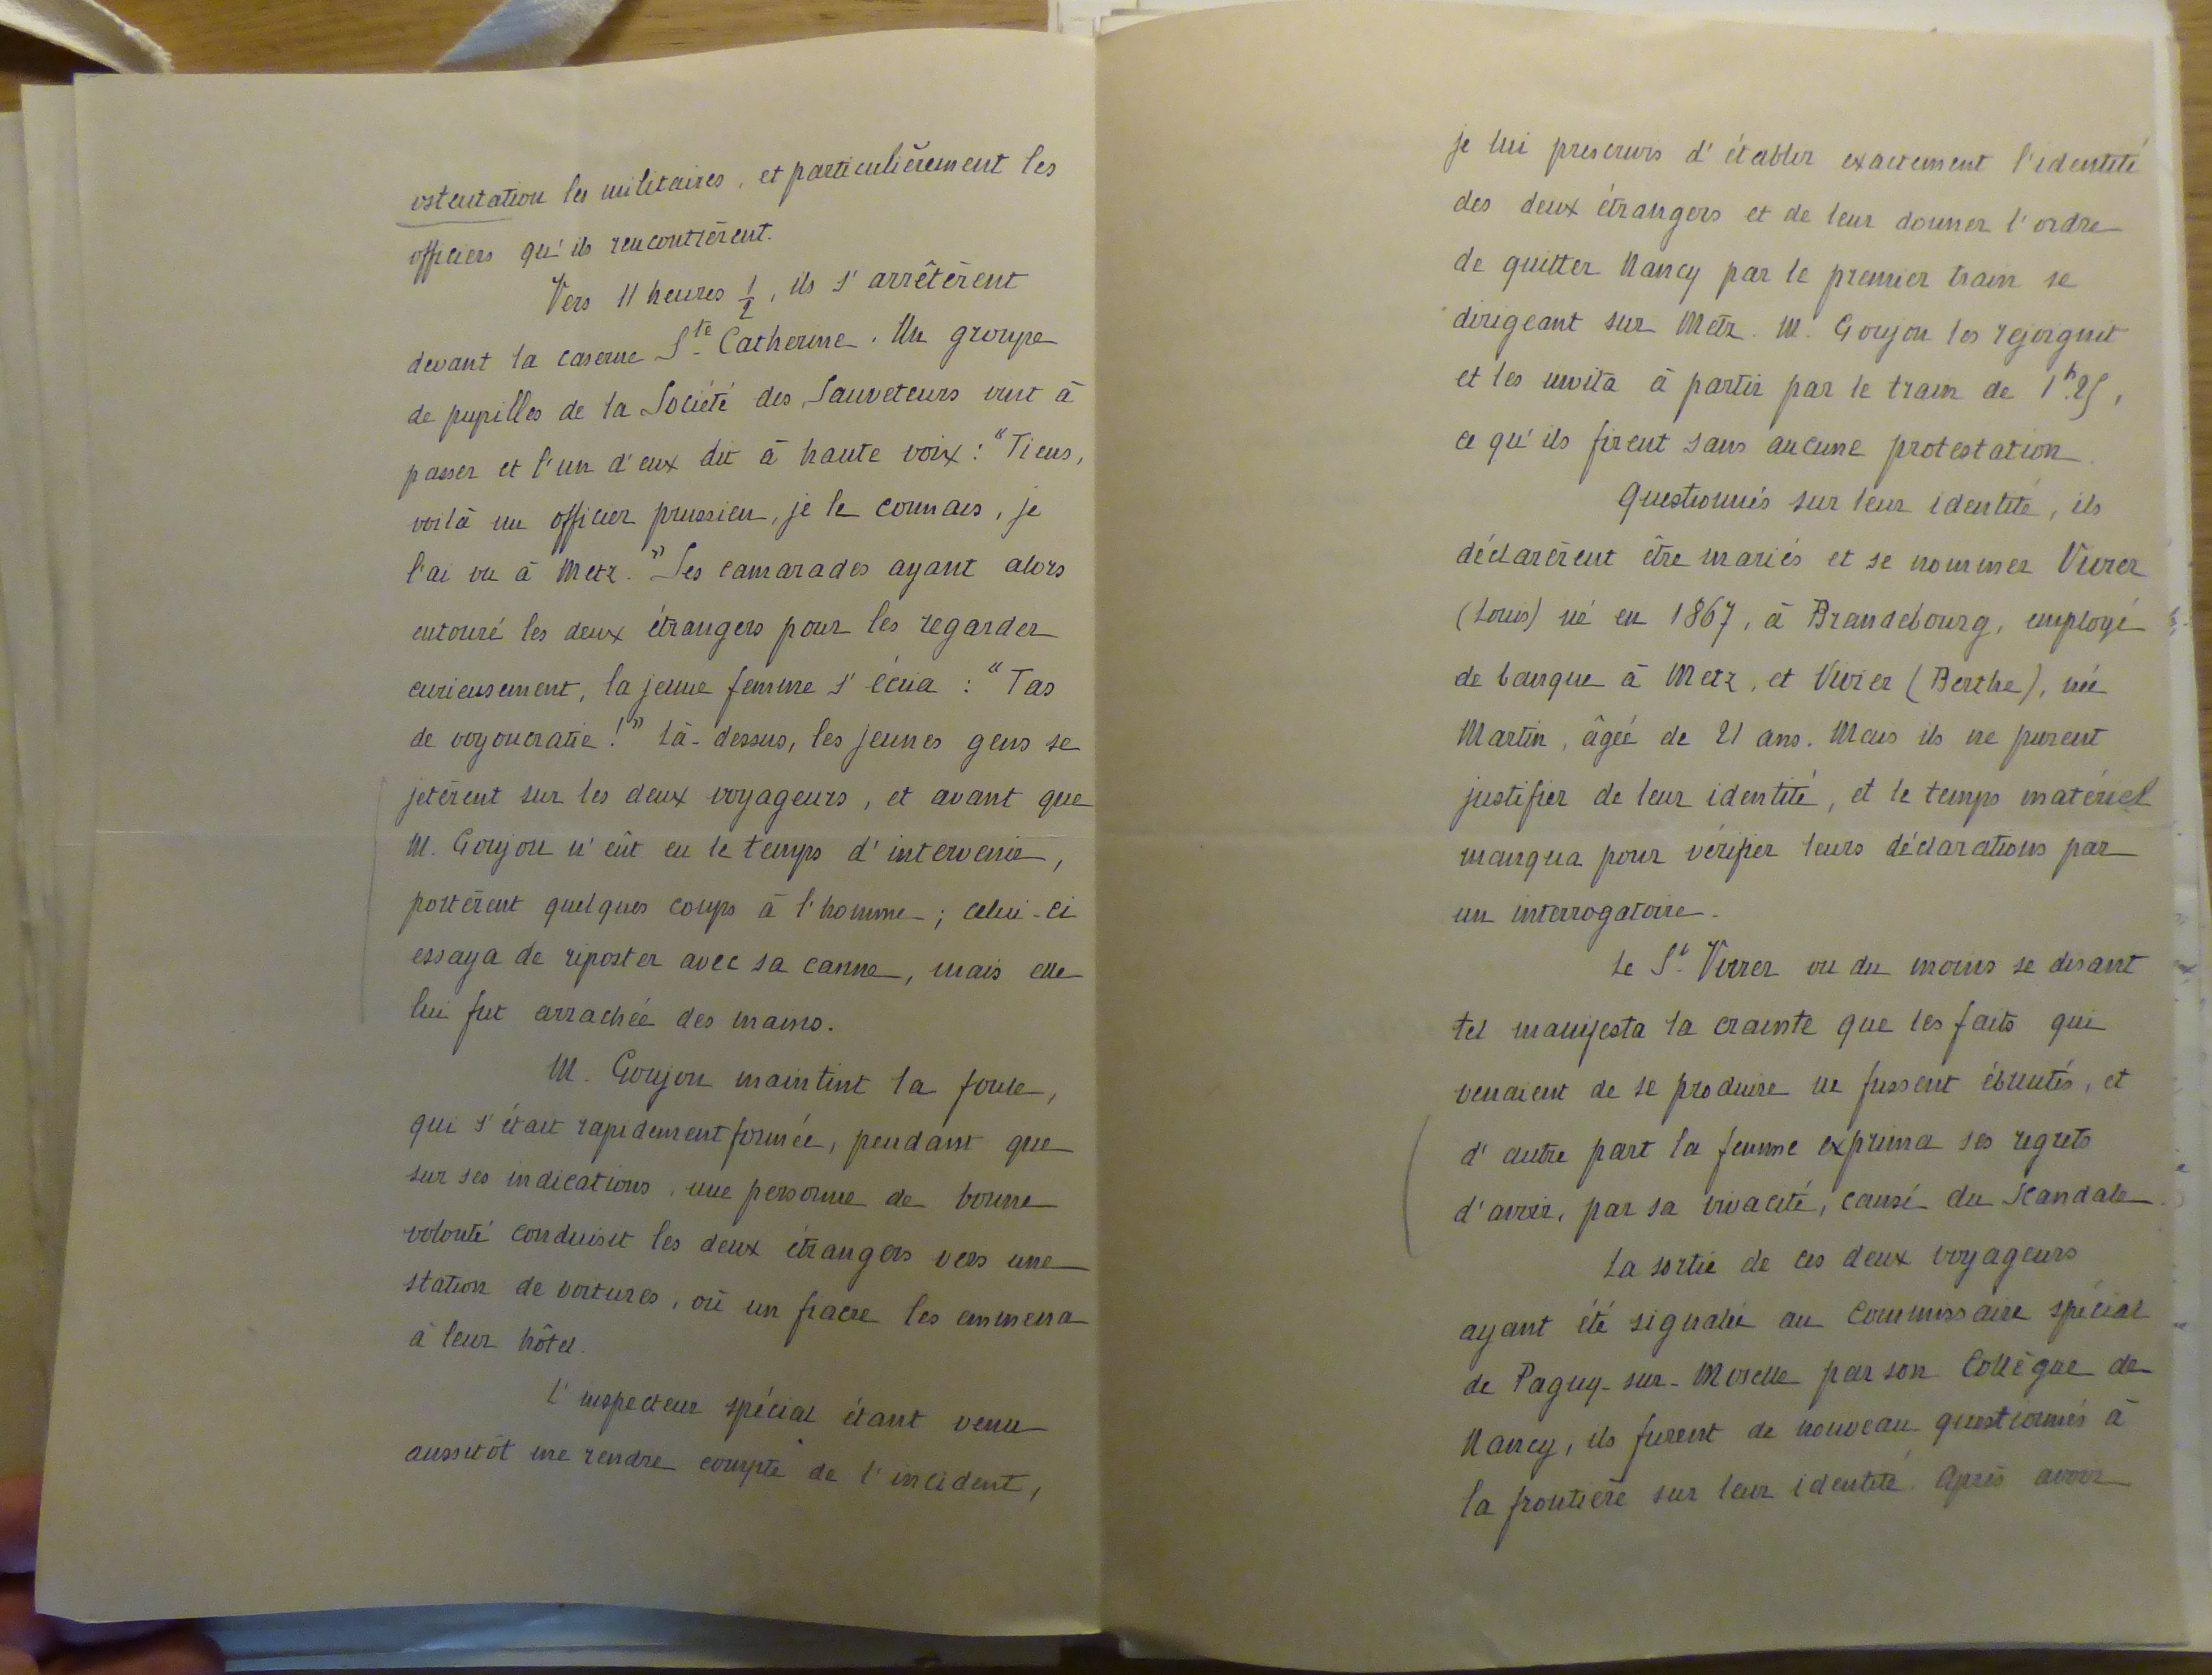 ostentation les militaires, et particulièrement les
officiers qu'ils rencontrèrent.
Vers 11 heures 1/2, ils s'arrêtèrent
devant la caserne Ste Catherine. Un groupe
de pupilles de la Société des Sauveteurs vint à
passer et l'un d'eux dit à haute voix : "Tiens,
voilà un officier prussien, je le connais, je
l'ai vu à Metz." Ses camarades ayant alors
entouré les deux étrangers pour les regarder
curieusement, la jeune femme s'écria : "Tas
de voyoucratie !" Là-dessus, les jeunes gens se
jetèrent sur les deux voyageurs, et avant que
M. Goujon n'eût eu le temps d'intervenir,
portèrent quelques coups à l'homme ; celui-ci
essaya de riposter avec sa canne, mais elle
lui fut arrachée des mains.
M. Goujon maintint la foule,
qui s'était rapidement formée, pendant que
sur ses indications, une personne de bonne
volonté conduisit les deux étrangers vers une
station de voitures, où un fiacre les emmena
à leur hôtel.
L'inspecteur spécial étant venu
aussitôt me rendre compte de l'incident,
je lui prescrivis d'établir exactement l'identité
des deux étrangers et de leur donner l'ordre
de quitter Nancy par le premier train se
dirigeant sur Metz. M. Goujon les rejoignit
et les invita à partir par le train de 1h.25,
ce qu'ils firent sans aucune protestation.
Questionnés sur leur identité, ils
déclarèrent être mariés et se nommer Vivier
(Louis) né en 1867, à Brandebourg, employé
de banque à Metz, et Vivier (Berthe), née
Martin, âgée de 21 ans. Mais ils ne purent
justifier de leur identité, et le temps matériel
manqua pour vérifier leurs déclarations par
un interrogatoire.
Le Sr. Vivier ou du moins se disant
tel manifesta la crainte que les faits qui
venaient de se produire ne fussent ébruités, et
d'autre part la femme exprima ses regrets
d'avoir, par sa vivacité, causé du scandale.
La sortie de ces deux voyageurs
ayant été signalée au Commissaire spécial
de Pagny-sur-Moselle par son Collègue de
Nancy, ils furent de nouveau questionnés à
la frontière sur leur identité. Après avoir